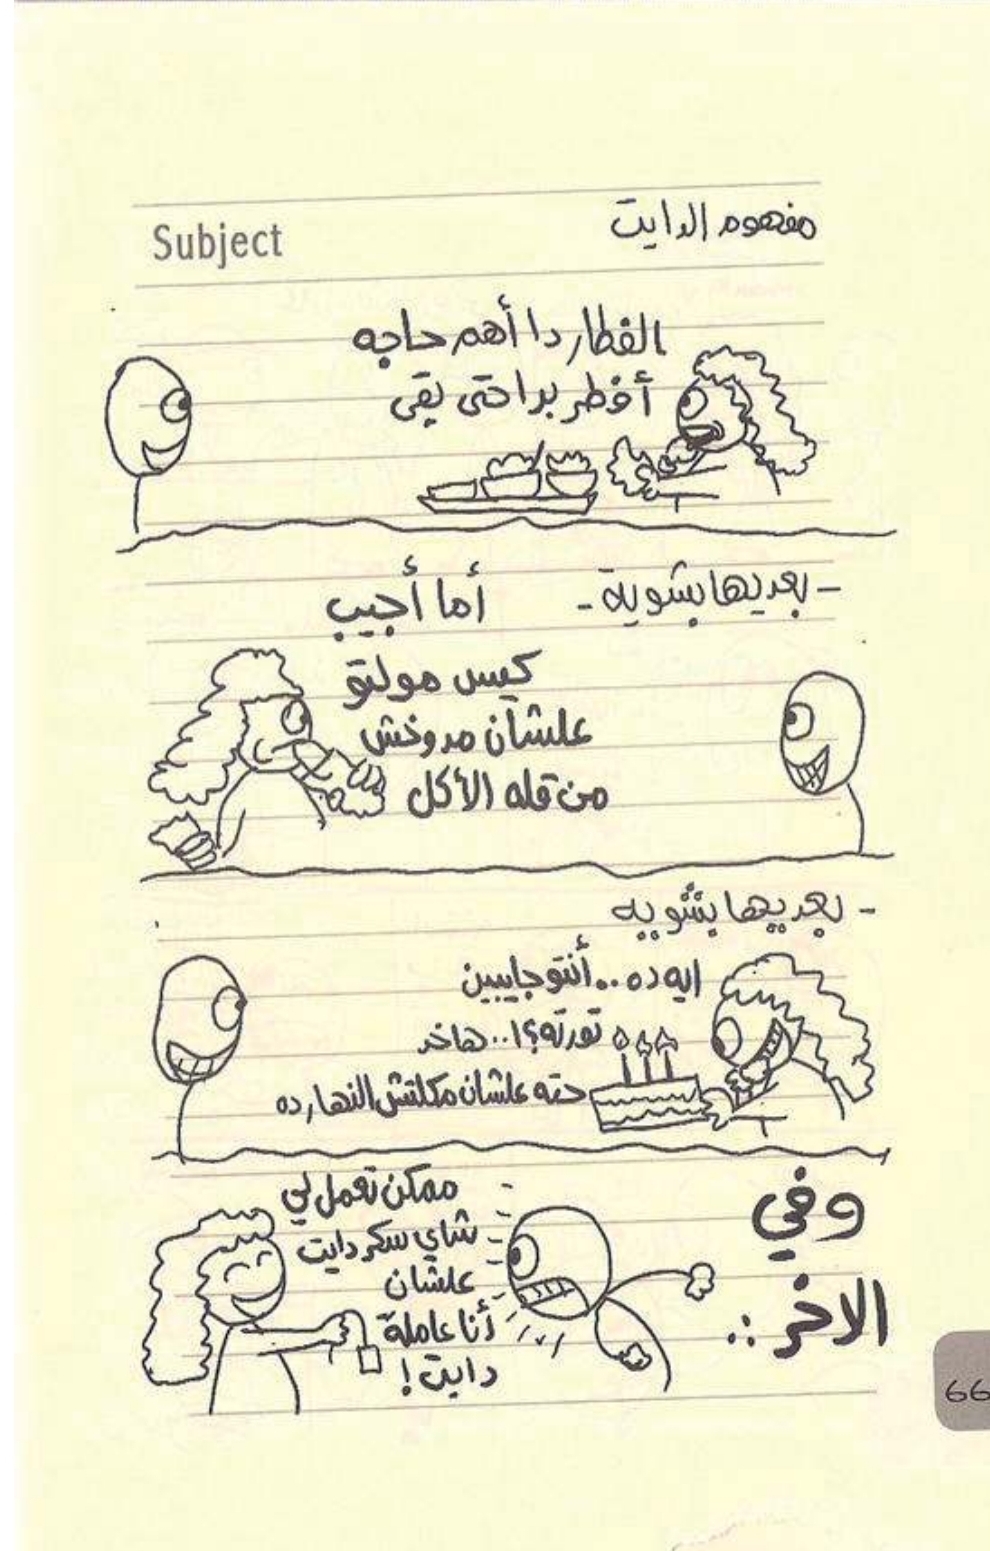 Subject
مفهوم الدايت
الفطار دا أهم حاجه
أفطر بدا حتى بقى
- بعديها بشوية -
أما أجيب
كيس مولتو
علشان مدوخش
من قله الأكل
- بعديها بشويه
ايه ده .. أنتو جايبين
تورته؟! .. هاخد
حته علشان مكلتش النهارده
وفي
الاخر ..
ممكن تعمل لي
شاي سكر دايت
علشان
أنا عاملة
دايت!
66